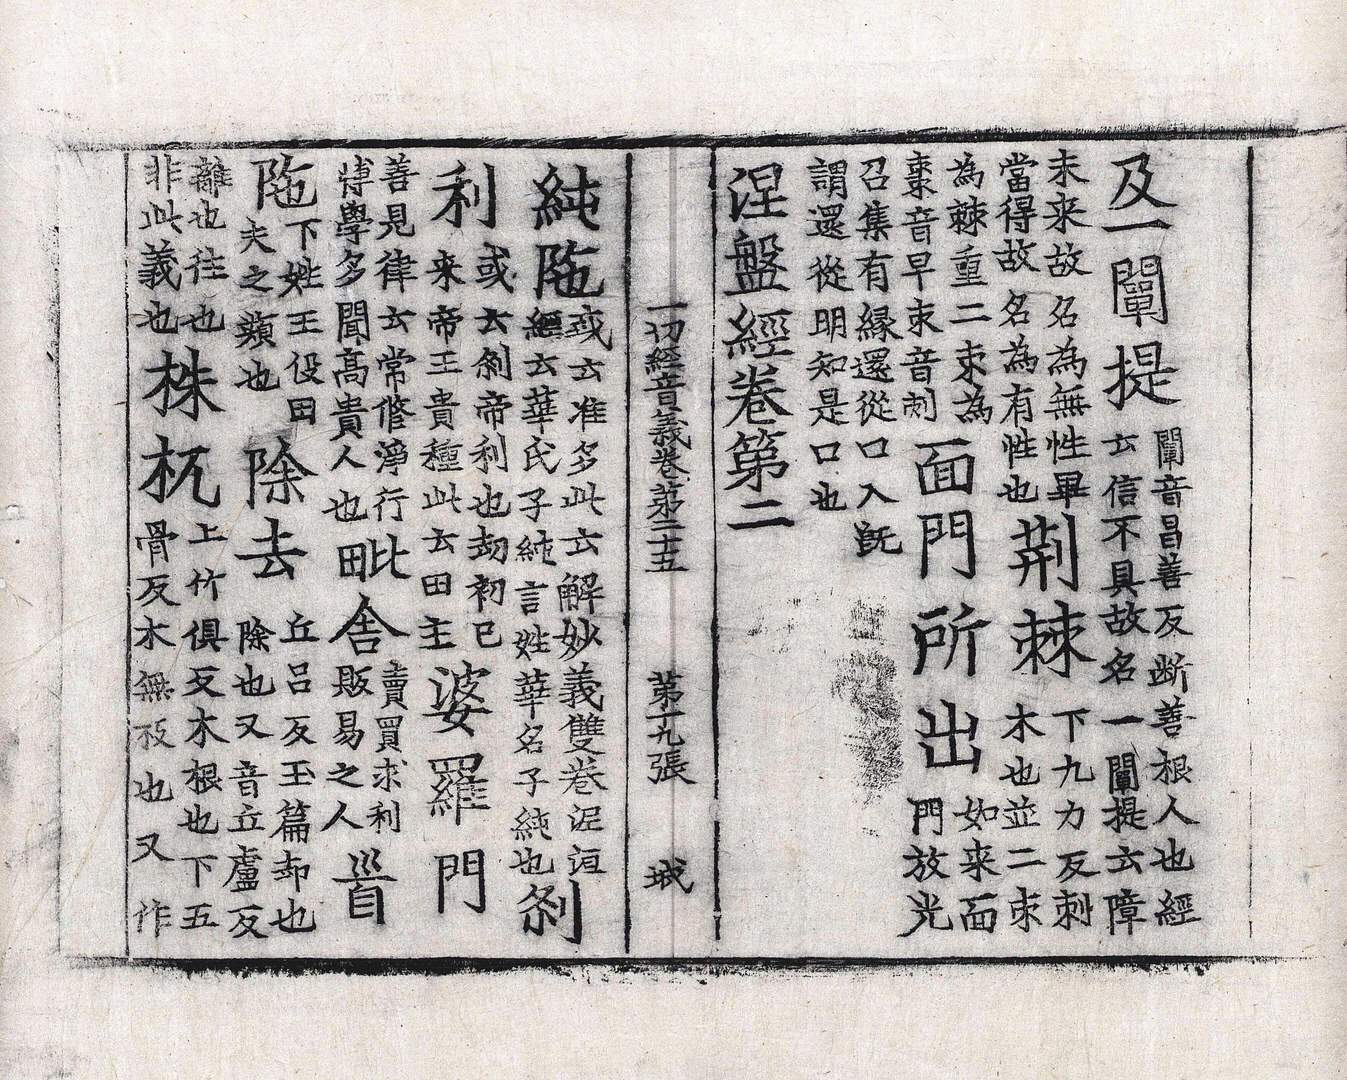 及一闡提
闡音昌善反断善根人也經
云信不具故名一闡提云障
未来故名為無性畢
當得故名為有性也
荆棘
下九力反刺
木也並二朿
為棘重二朿為
棗音早朿音刺
面門所出
如来面
門放光
召集有縁還從口入既
謂還從明知是口也
涅盤經卷第二
一切經音義卷第二十五 第十九張 城
純陁
或云准多此云解妙義雙卷泥洹
經云華氏子純言姓華名子純也
刹
利
或云刹帝利也劫初已
来帝王貴種此云田主
婆羅門
善見律云常修淨行
博學多聞高貴人也
毗舍
賣買求利
販易之人
𩠐
陁
下姓王役田
夫之類也
除去
丘吕反玉篇却也
除也又音丘盧反
離也往也
非此義也
株杌
上竹俱反木根也下五
骨反木無枝也又作